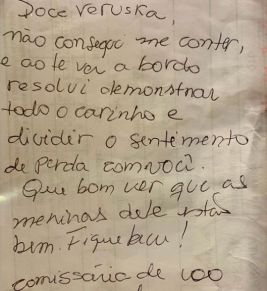 Doce Veruska,
não consegui me conter,
e ao te ver a bordo
resolvi demonstrar
todo o carinho e
dividir o sentimento
de perda com você.
Que bom ver que as
meninas dele estão
bem. Fique bem!
comissária de voo